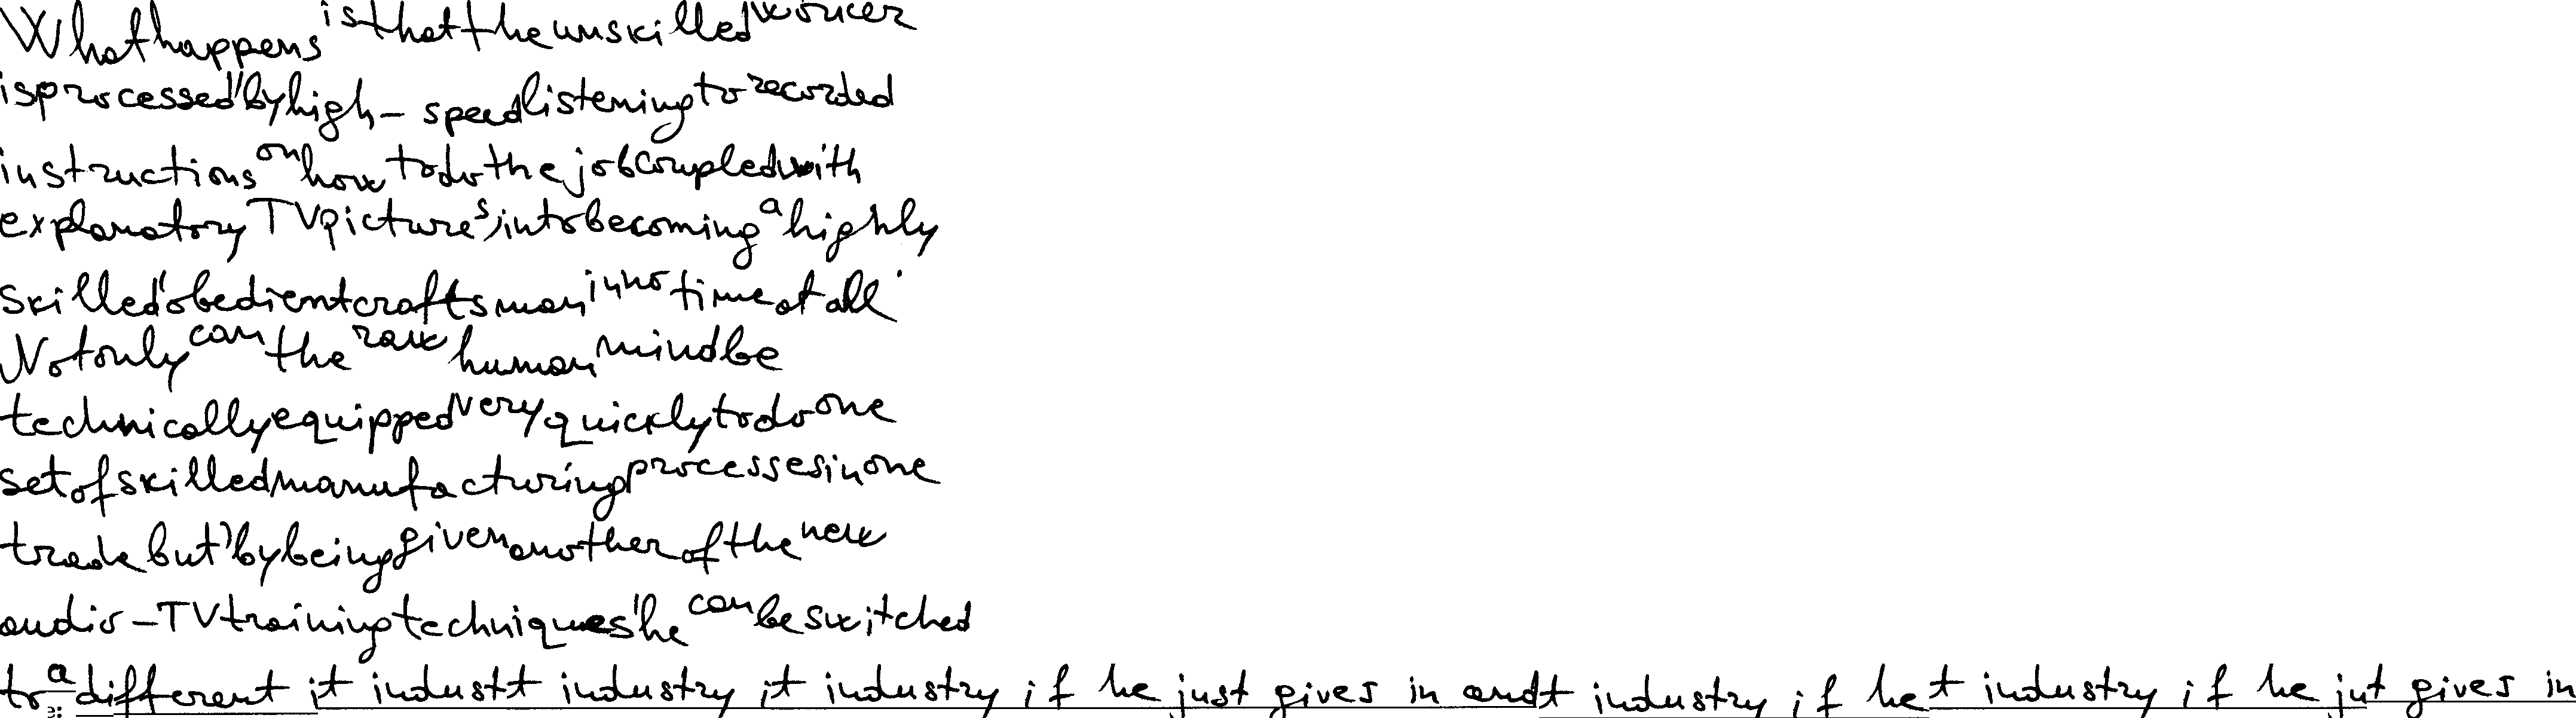 What happens is that the unskilled worker
is processed, by high-speed listening to recorded
instructions on how to do the job coupled with
explanatory TV pictures, into becoming a highly
skilled, obedient craftsman in no time at all.
Not only can the raw human mind be
technically equipped very quickly to do one
set of skilled manufacturing processes in one
trade but, by being given another of the new
audio-TV training techniques, he can be switched
to a different it industt industry it industry if he just gives in andt industry if het industry if he jut gives in